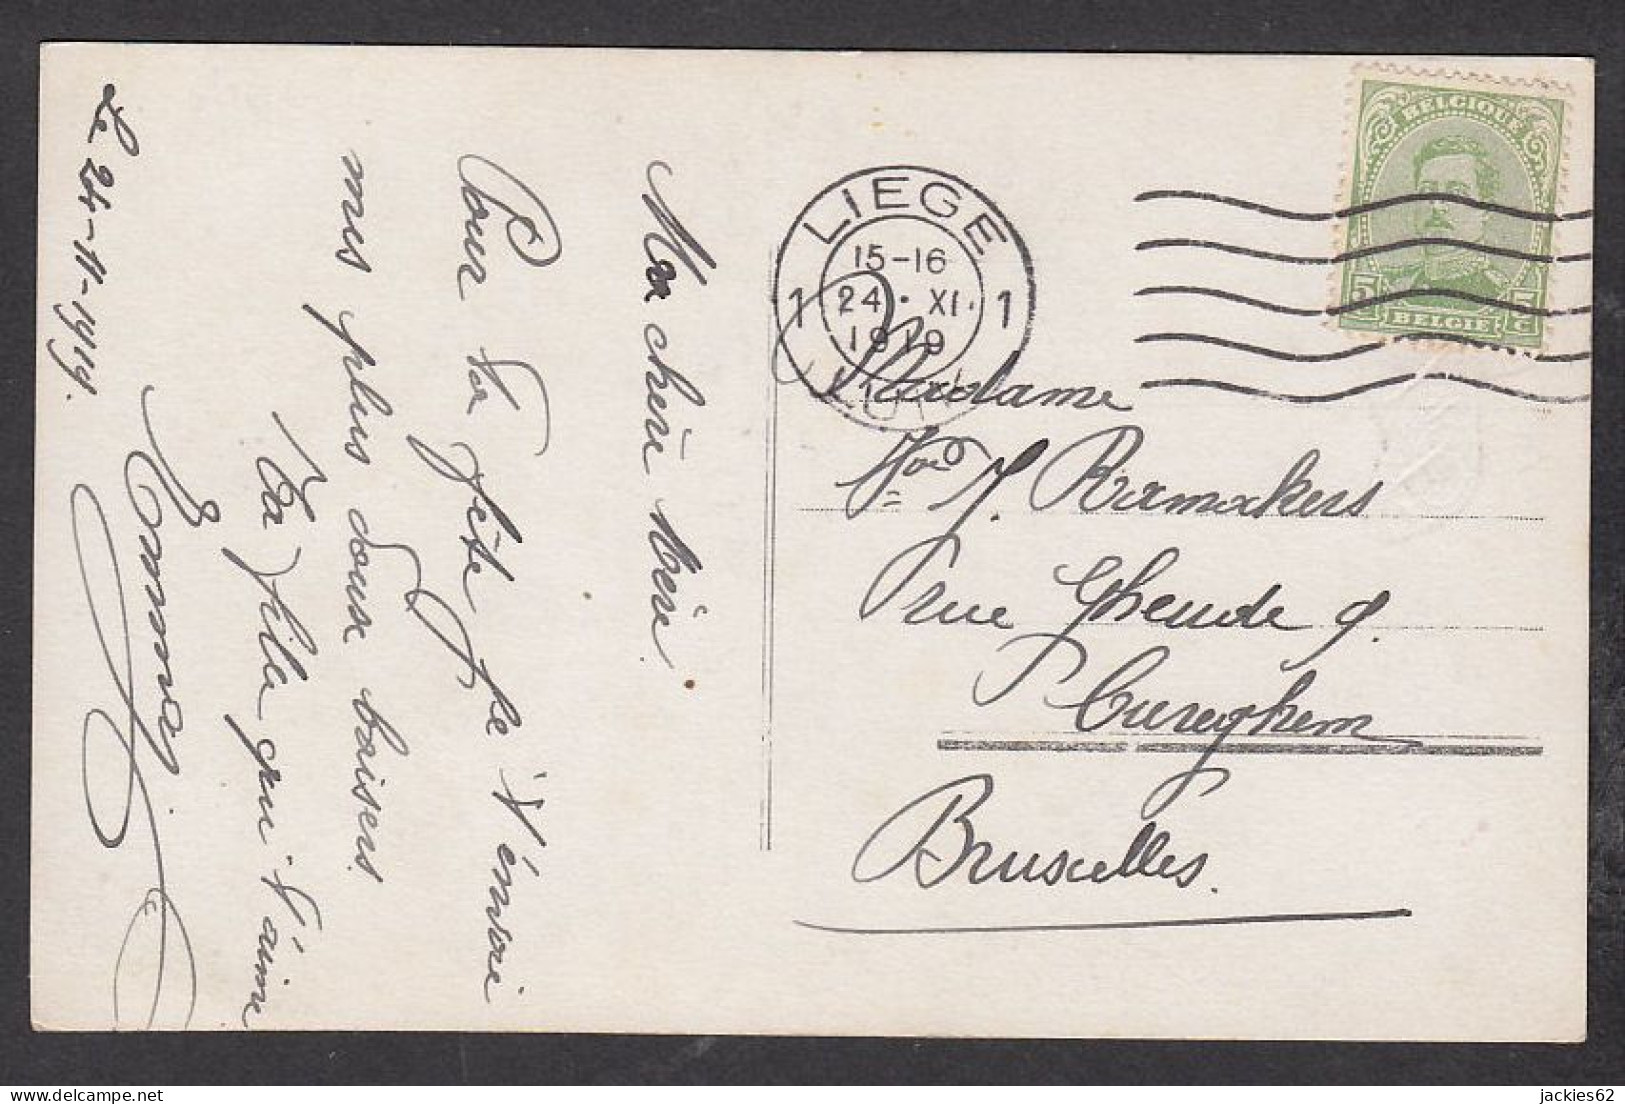 Le 24-11-1919.
Ma chère mère.
Pour ta fête je t'envoie
mes plus doux baisers
Ta fille qui t'aime
Emmay.
LIEGE
1 15-16 1
24 · XI.
1919
LUIK
BELGIQUE
5 5
C C
BELGIË
Madame
J. Ramakers
rue Gheude 9.
Cureghem
Bruxelles.
jackies62